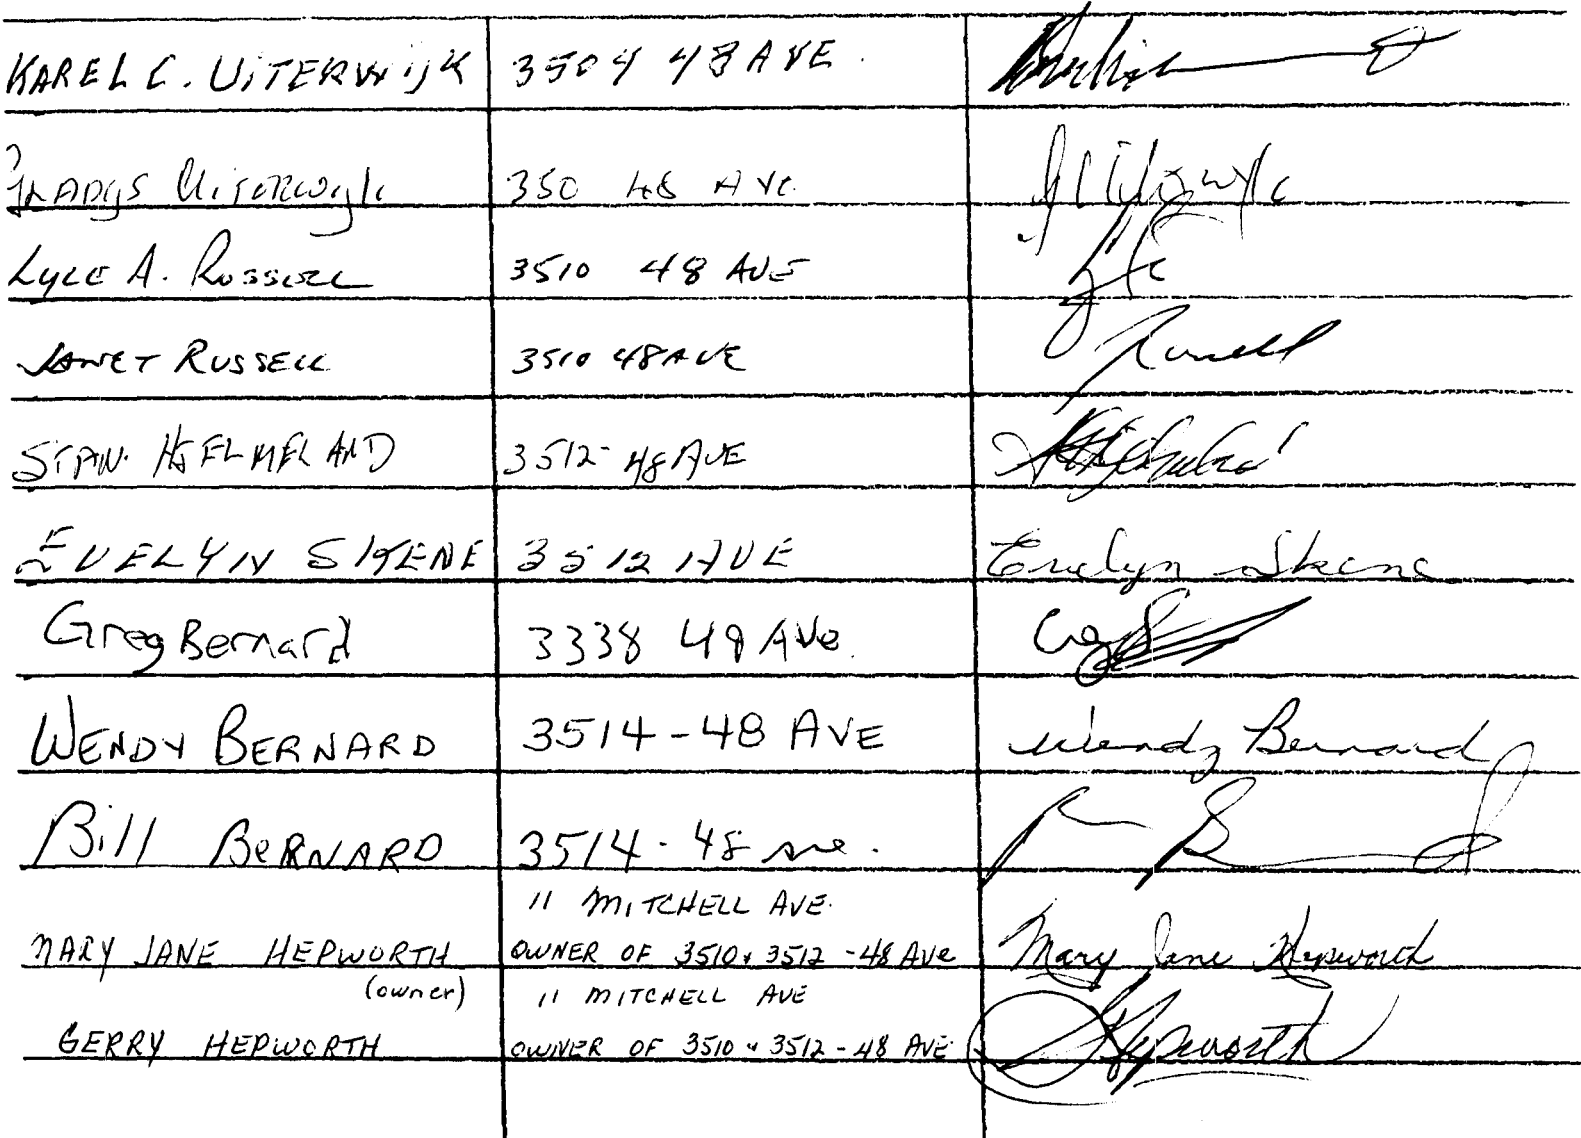 KAREL C. UITERWIJK 3504 48 AVE.
GLADYS Uiterwyk 350 48 AVE
LYLE A. RUSSELL 3510 48 AVE
JANET RUSSELL 3510 48 AVE Russell
STAN. HJELMELAND 3512-48 AVE
EVELYN SKENE 3512 AVE Evelyn Skene
Greg Bernard 3338 48 Ave.
WENDY BERNARD 3514-48 AVE Wendy Bernard
Bill BERNARD 3514-48 ave.
11 MITCHELL AVE.
MARY JANE HEPWORTH OWNER OF 3510 & 3512 -48 AVE Mary Jane Hepworth
(owner) 11 MITCHELL AVE
GERRY HEPWORTH OWNER OF 3510 & 3512 -48 AVE GHepworth